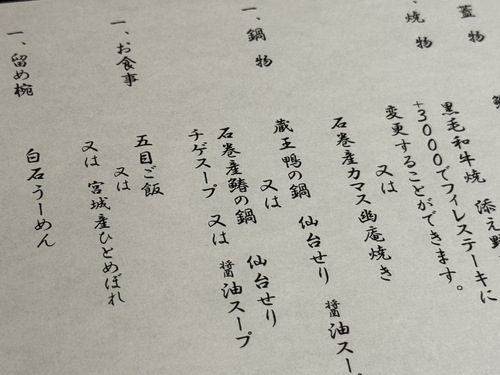 蓋物
焼物
黒毛和牛焼 添え野
+3000でフィレステーキに
変更することができます。
又は
石巻産カマス幽庵焼き
一、鍋物
蔵王鴨の鍋 仙台せり 醤油スー
又は
石巻産鰆の鍋 仙台せり
チゲスープ 又は 醤油スープ
一、お食事
五目ご飯
又は
又は 宮城産ひとめぼれ
一、留め椀
白石うーめん